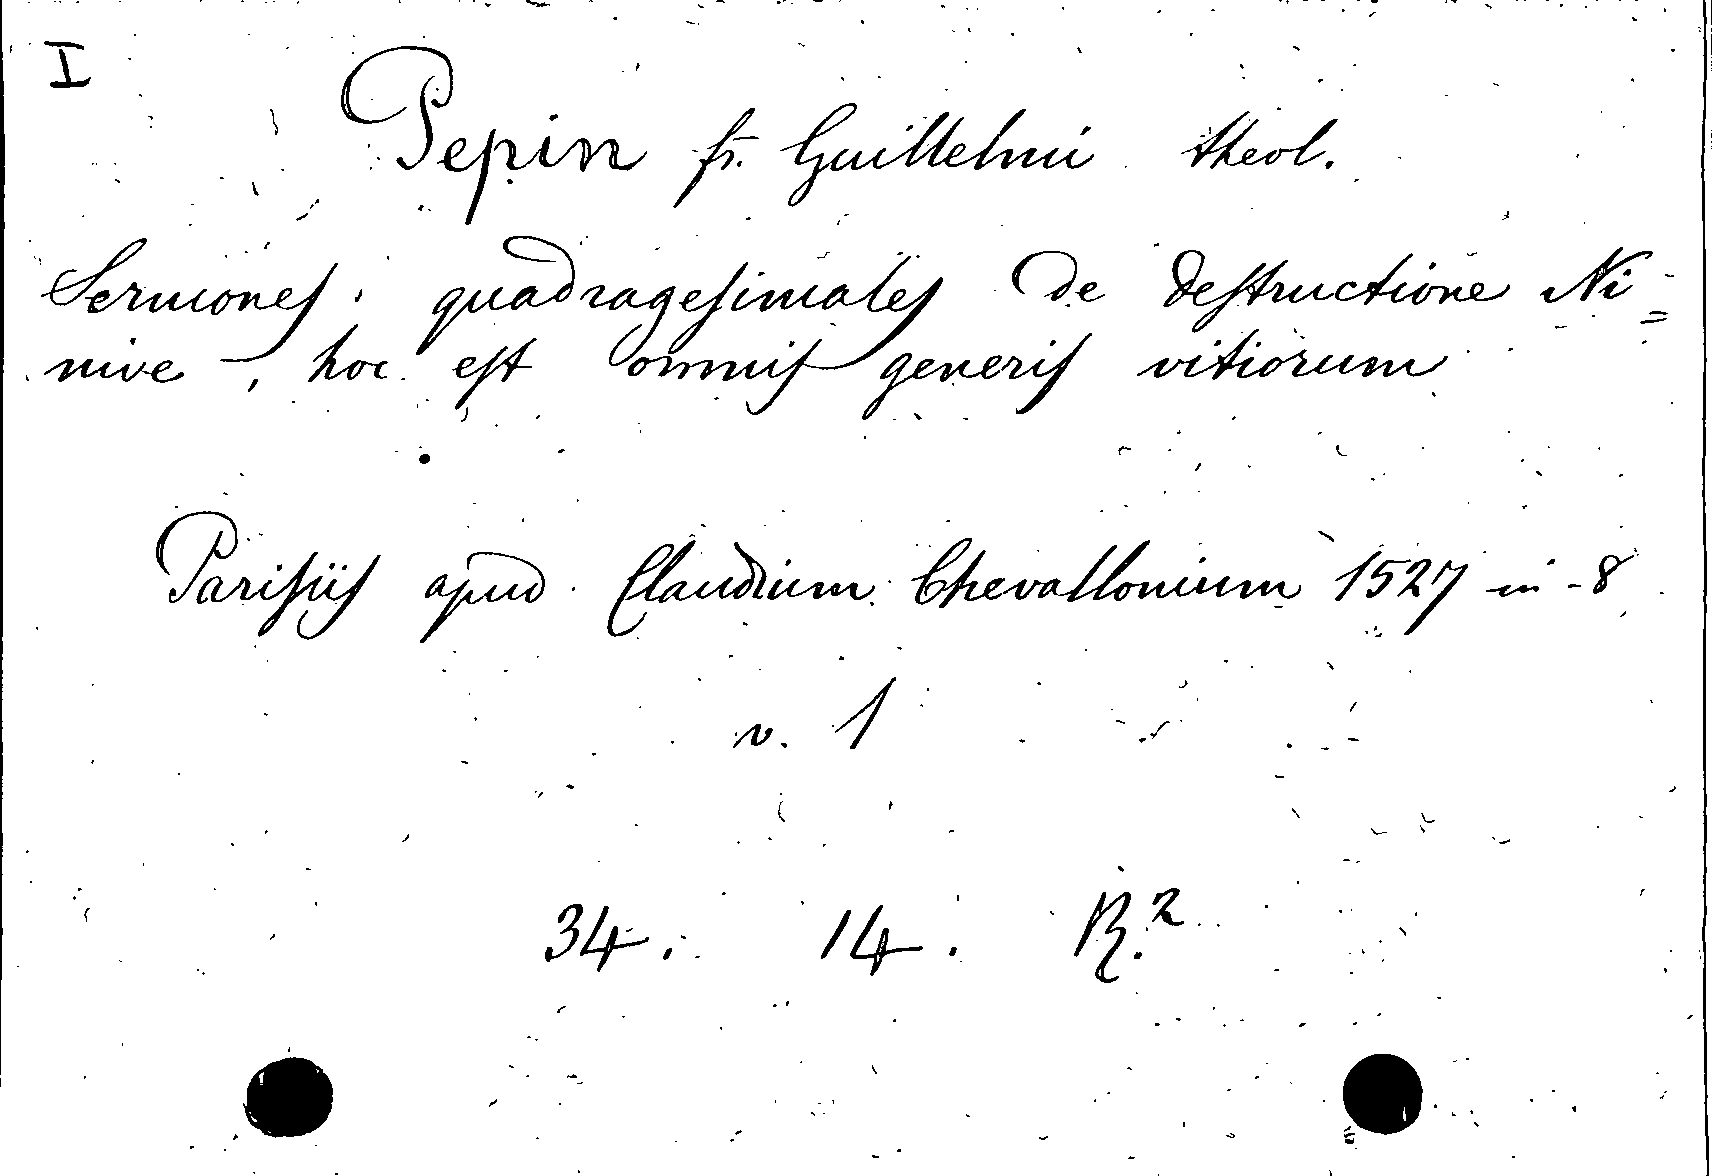 I
Pepin fr. Guillelmi theol.
Sermones quadragesimales de destructione Ni=
nive, hoc est omnis generis vitiorum
Parisiis apud Claudium Chevallonium 1527 in-8
v. 1
34. 14. R.2